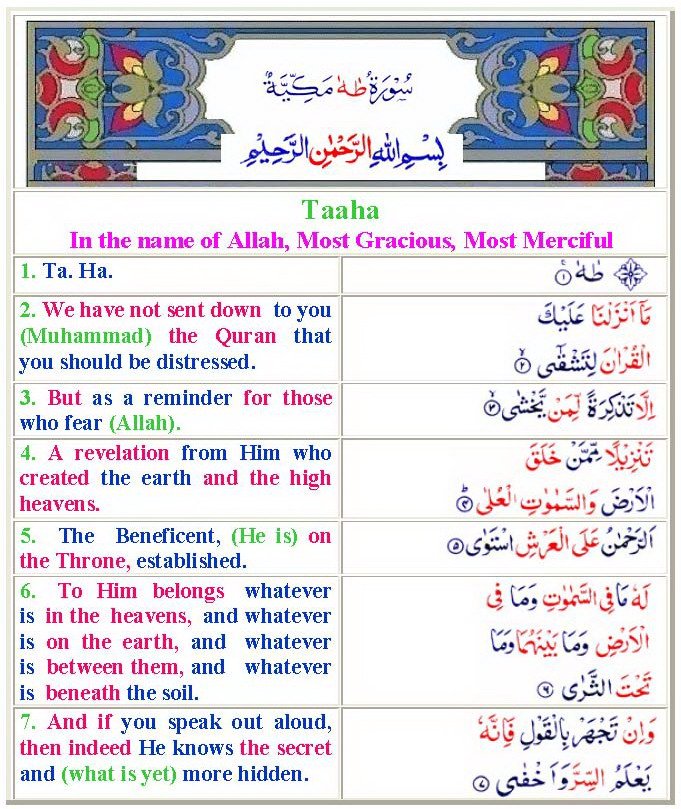 سُوْرَةُ طٰهٰ مَكِّيَّةٌ
بِسْمِ اللّٰهِ الرَّحْمٰنِ الرَّحِيْمِ
Taaha
In the name of Allah, Most Gracious, Most Merciful
1. Ta. Ha.
طٰهٰ ۝١
2. We have not sent down to you
(Muhammad) the Quran that
you should be distressed.
مَاۤ اَنْزَلْنَا عَلَيْكَ
الْقُرْاٰنَ لِتَشْقٰٓى ۝٢
3. But as a reminder for those
who fear (Allah).
اِلَّا تَذْكِرَةً لِّمَنْ يَّخْشٰى ۝٣
4. A revelation from Him who
created the earth and the high
heavens.
تَنْزِيْلًا مِّمَّنْ خَلَقَ
الْاَرْضَ وَالسَّمٰوٰتِ الْعُلٰى ۝٤
5. The Beneficent, (He is) on
the Throne, established.
اَلرَّحْمٰنُ عَلَى الْعَرْشِ اسْتَوٰى ۝٥
6. To Him belongs whatever
is in the heavens, and whatever
is on the earth, and whatever
is between them, and whatever
is beneath the soil.
لَهٗ مَا فِى السَّمٰوٰتِ وَمَا فِى
الْاَرْضِ وَمَا بَيْنَهُمَا وَمَا
تَحْتَ الثَّرٰى ۝٦
7. And if you speak out aloud,
then indeed He knows the secret
and (what is yet) more hidden.
وَاِنْ تَجْهَرْ بِالْقَوْلِ فَاِنَّهٗ
يَعْلَمُ السِّرَّ وَاَخْفٰى ۝٧